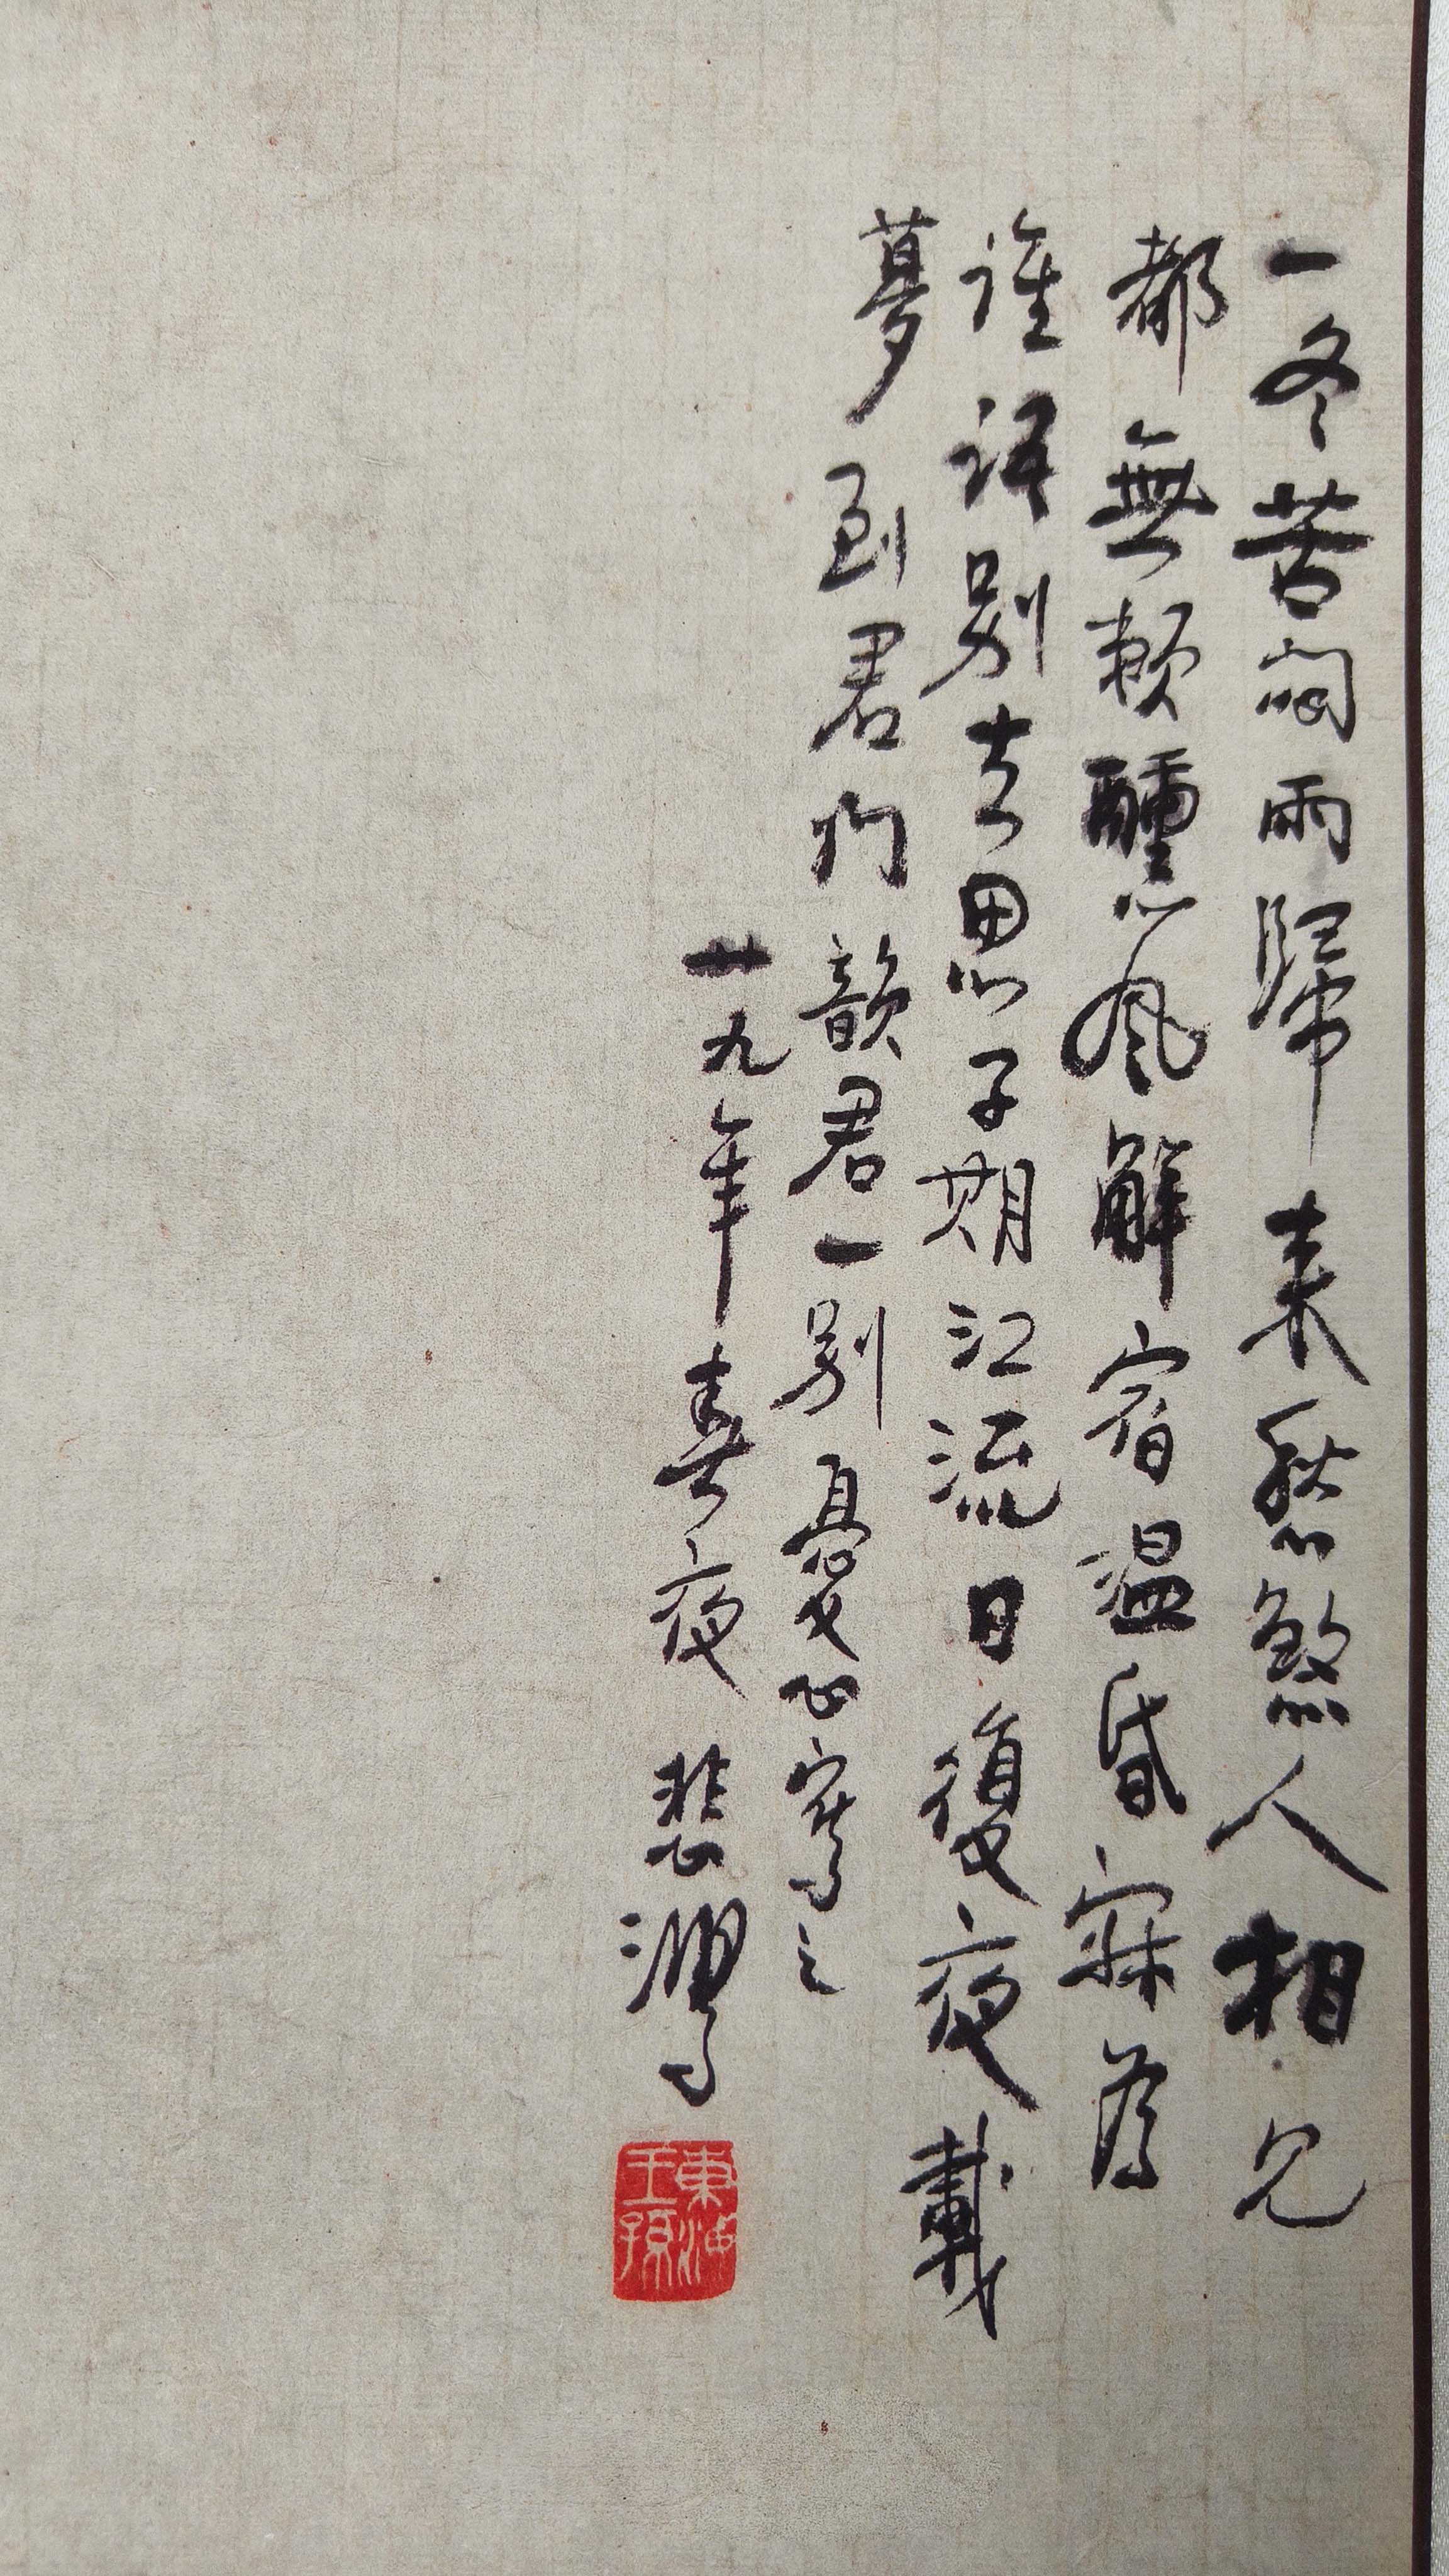 一冬苦悶雨歸来愁煞人相見
都無賴醺風解宿温昏寐為
誰語别去思子期江流日復夜載
夢到君門韻君一别憂心寫之
廿九年春夜悲鴻
東海王孫